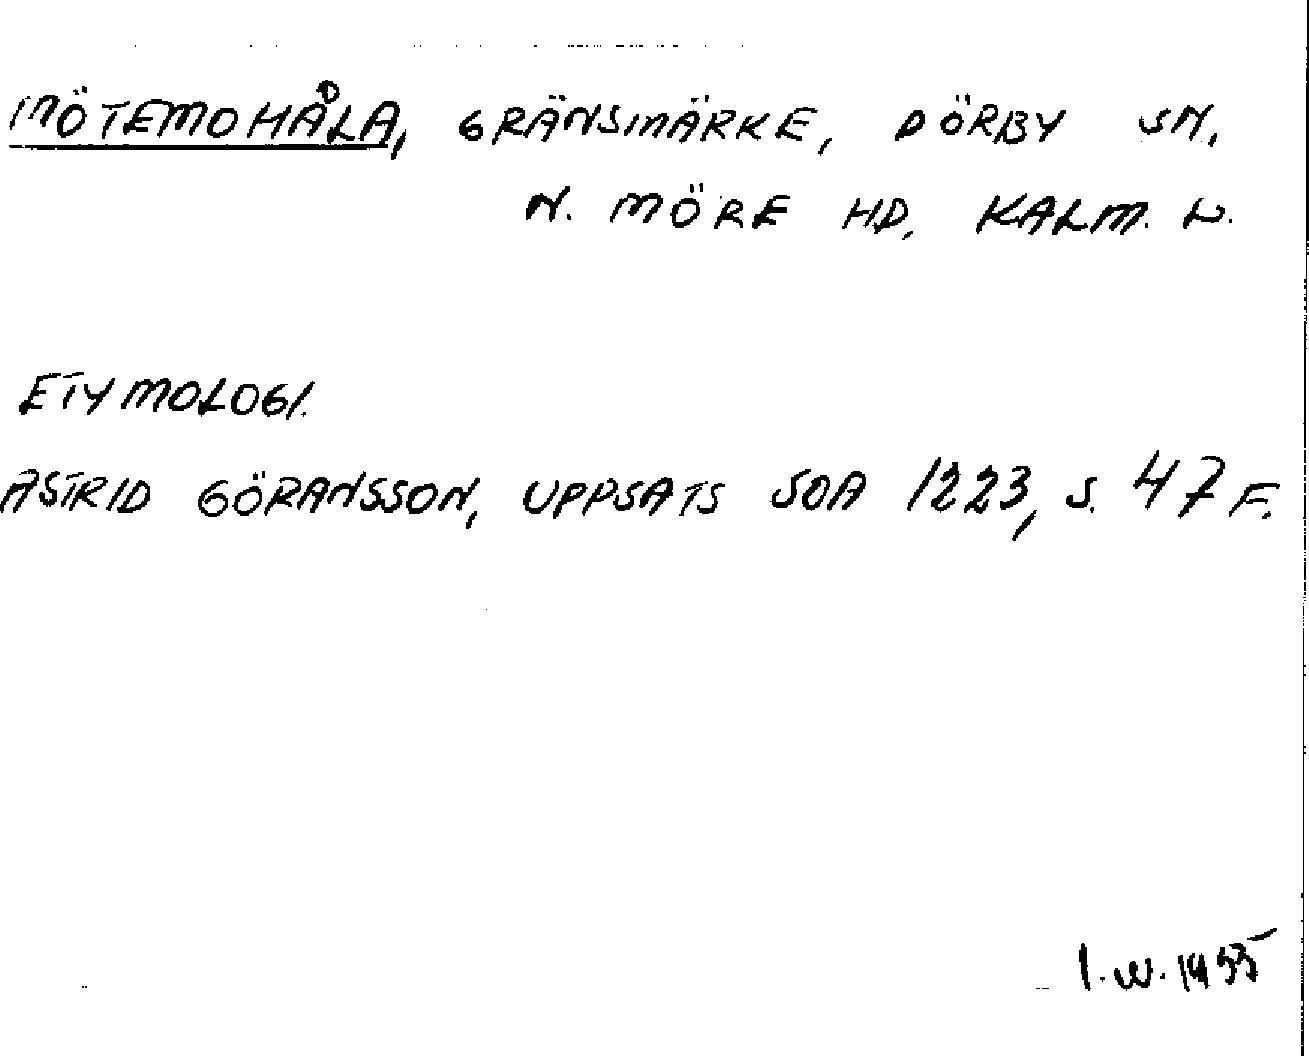 MÖTEMOHÅLA, GRÄNSMÄRKE, DÖRBY SN,
N. MÖRE HD, KALM. L.
ETYMOLOGI.
ASTRID GÖRANSSON, UPPSATS SOA 1223, S. 47 F.
I.W. 1955